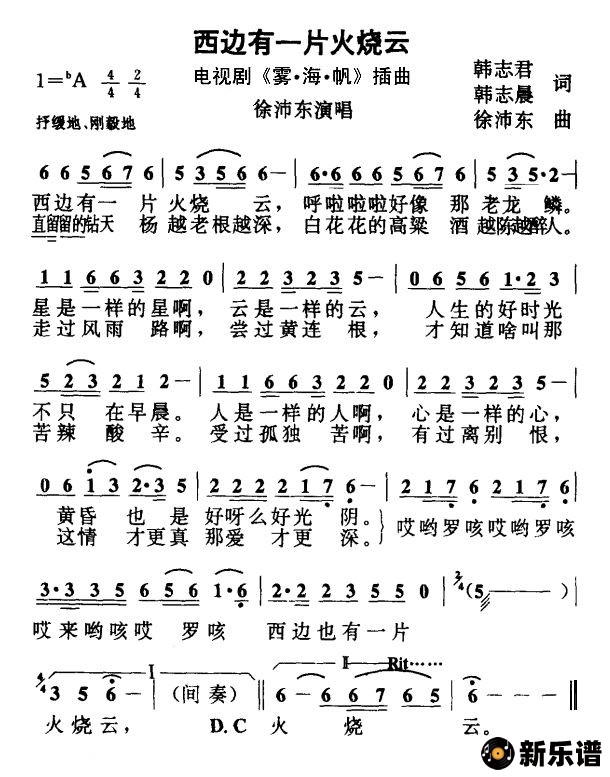 西边有一片火烧云
1=ᵇA 4/4 2/4
电视剧《雾·海·帆》插曲
韩志君 词
韩志晨
徐沛东 曲
徐沛东演唱
抒缓地、刚毅地
6 6 5 6 7 6 | 5 3 5 6 6 – | 6·6 6 6 5 6 7 6 | 5 3 5·2 – |
西边有一 片 火 烧 云， 呼啦啦啦好像 那 老龙 鳞。
直留留的钻天 杨 越老根越深， 白花花的高粱 酒 越陈越醉人。
1 1 6 6 3 2 2 0 | 2 2 3 2 2 3 5 – | 0 5 6 5 6 1·2 3 |
星是一样的星啊， 云是一样的云， 人生的好时光
走过风雨 路啊， 尝过黄连 根， 才知道啥叫那
5 2 3 2 1 2 – | 1 1 6 6 3 2 2 0 | 2 2 3 2 2 3 5 – |
不只 在早晨。 人是一样的人啊， 心是一样的心，
苦辣 酸 辛。 受过孤独 苦啊， 有过离别 恨，
0 6 1 3 2·3 5 | 2 2 2 2 1 7 6 | 2 1 7 6 2 1 7 6 |
黄昏 也 是 好呀么好光 阴。 哎哟罗咳哎哟罗咳
这情 才更真 那爱 才更 深。
3·3 3 5 6 5 6 1·6 | 2·2 2 3 5 5 0 | 2/4 (5 – ) |
哎来哟咳哎 罗咳 西边也有一片
I II Rit……
4/4 3 5 6 – | (间奏) ‖ 6 – 6 6 7 6 5 | 6 – – – ‖
火烧云， D.C 火 烧 云。
新乐谱